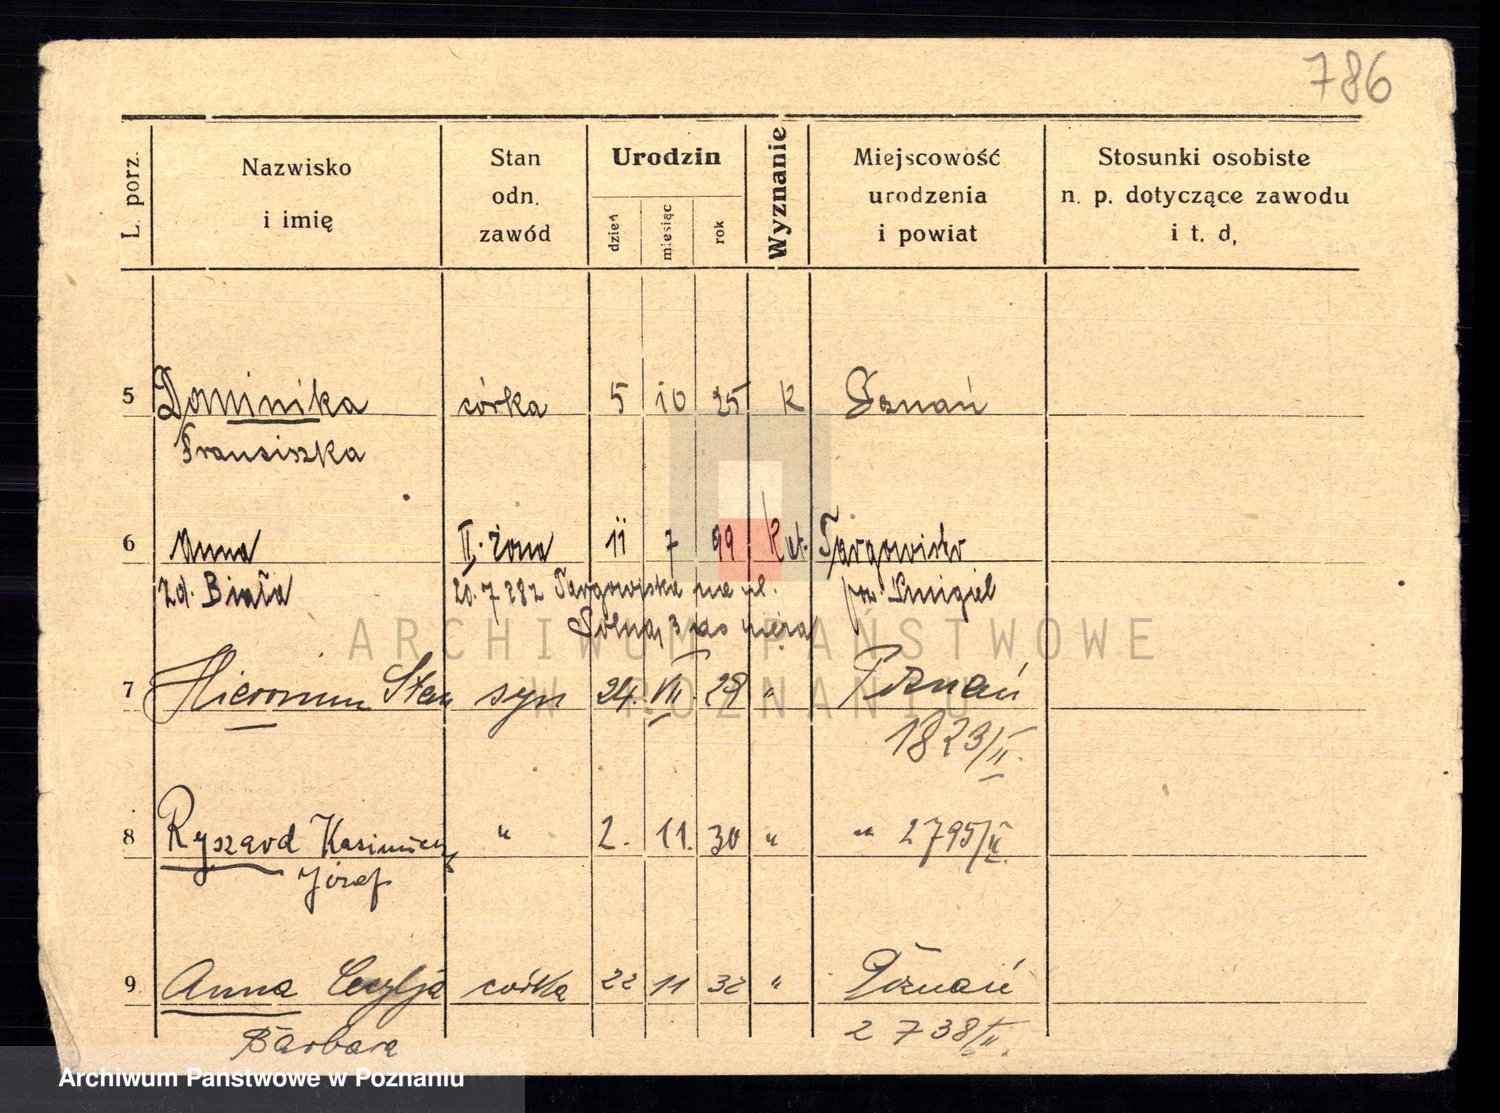 786
L. porz.
Nazwisko
i imię
Stan
odn.
zawód
Urodzin
dzień
miesiąc
rok
Wyznanie
Miejscowość
urodzenia
i powiat
Stosunki osobiste
n. p. dotyczące zawodu
i t. d.
5 Dominika córka 5 10 25 K Poznań
Fransiszka
6 Anna II. żona 11 7 99 Kat. Targowisko
zd. Biała 20. 7 282 Targowiska na ul. pow. Śmigiel
Solną 3 do
ARCHIWUM PAŃSTWOWE
7 Hieronim Stan syn 24. VII. 28 " Poznań
W POZNANIU
1823/II.
8 Ryszard Kasimierz " 2. 11. 30 " " 2795/II.
Józef
9 Anna Cecylja córka 22 11 32 " Poznań
Barbara 2738/II.
Archiwum Państwowe w Poznaniu